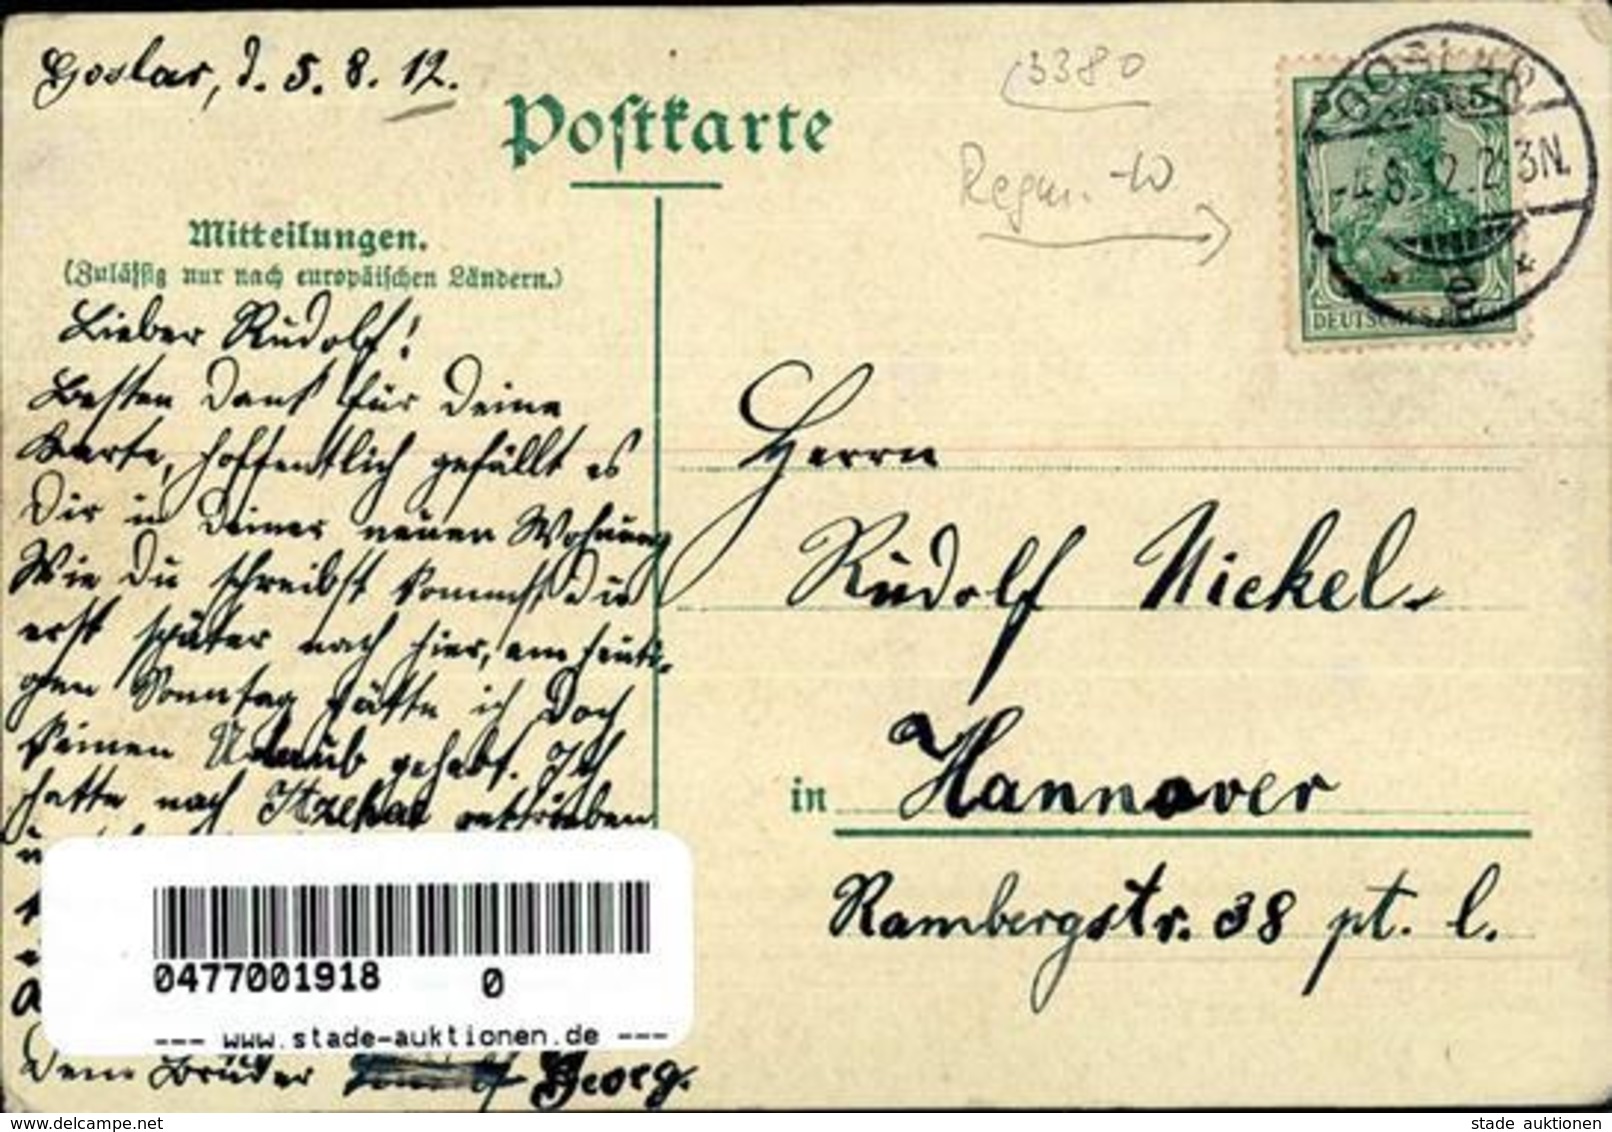 Goslar, d. 5. 8. 12.
Postkarte
3380
GOSLAR
-4.8.12.2-3N.
* e *
DEUTSCHES REICH
Mitteilungen.
(Zulässig nur nach europäischen Ländern.)
Lieber Rudolf!
Besten Dank für Deine
Karte, hoffentlich gefällt es
Dir in Deiner neuen Wohnung
Wie Du schreibst kommst Du
erst später nach hier, am heuti-
gen Sonntag hätte ich doch
keinen Urlaub gehabt. Ich
hatte nach geschrieben
Dein Bruder Georg.
Herrn
Rudolf Nickel.
in Hannover
Rambergstr. 38 pt. l.
0477001918 0
--- www.stade-auktionen.de ---
stade auktionen